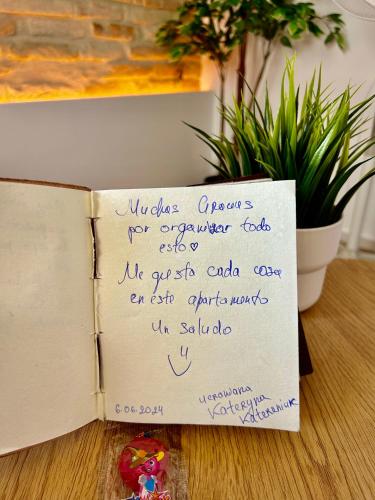 Muchas Gracias
por organizar todo
esto ♡
Me gusta cada cosa
en este apartamento
Un saludo
6.06.2024
Kateryna